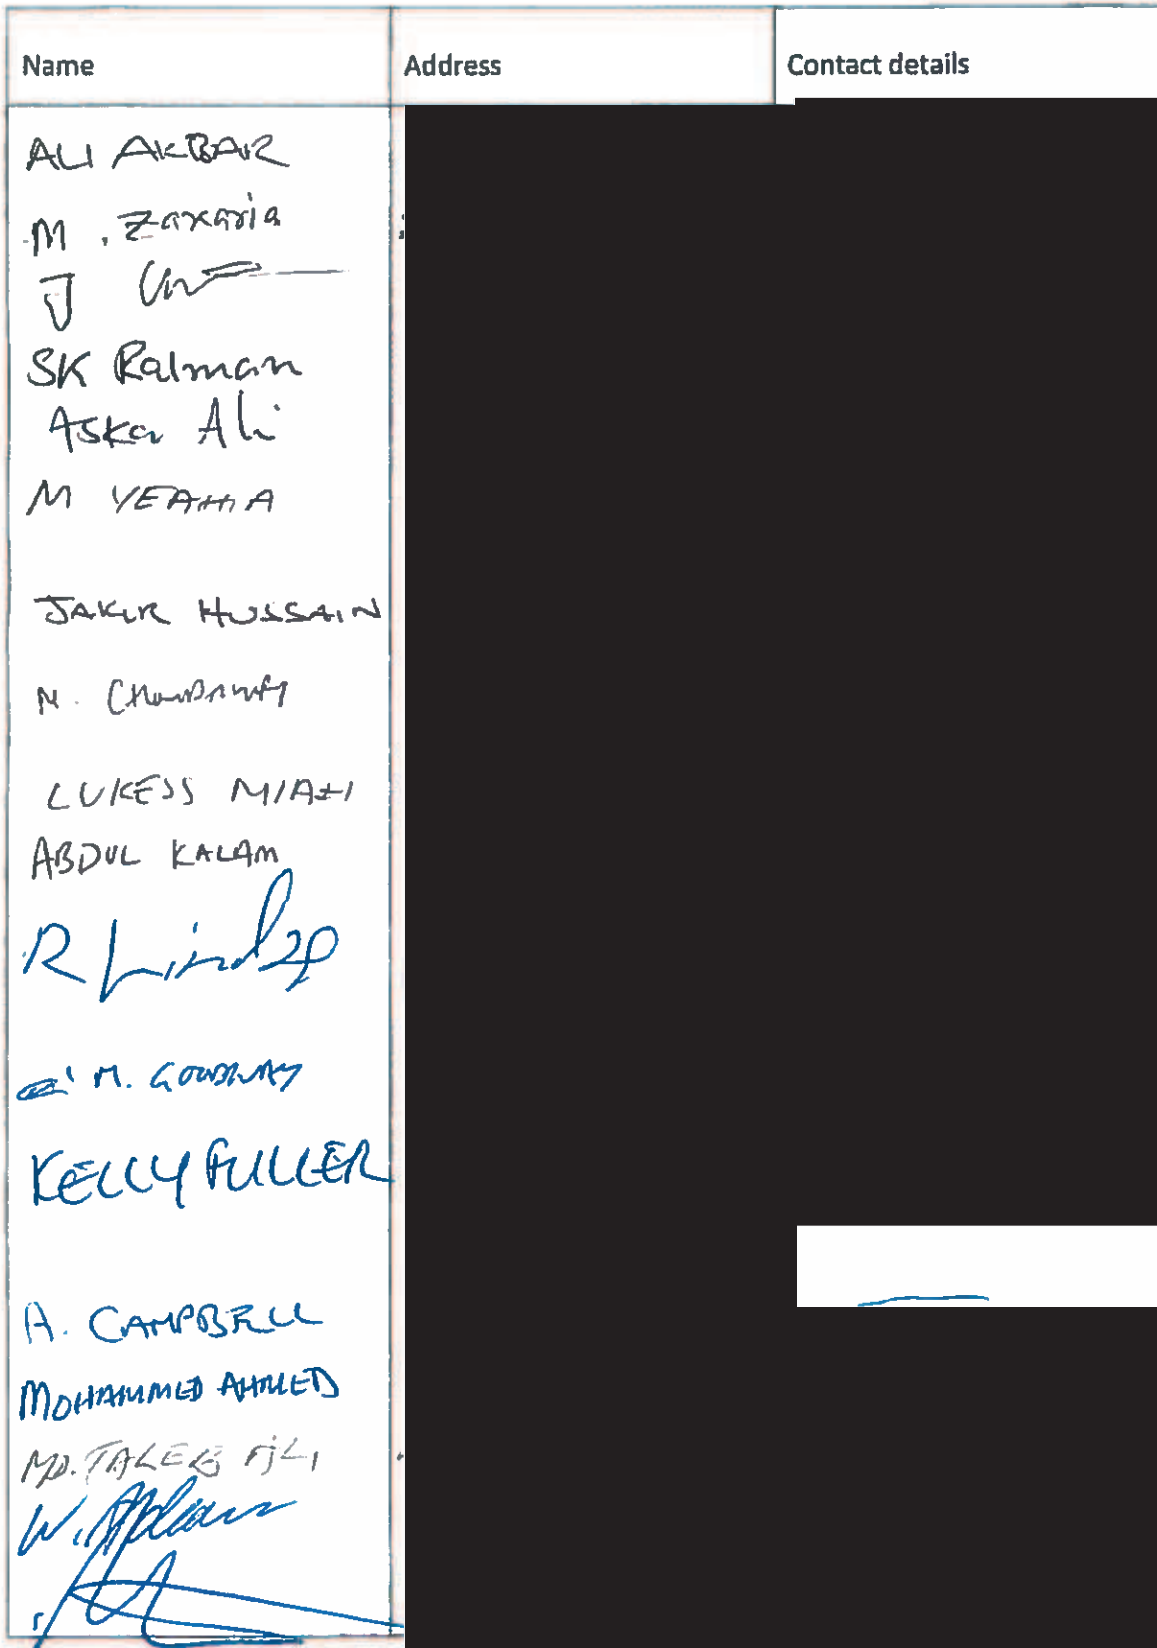 Name Address Contact details
ALI AKBAR
M. Zaxaria
J
SK Ralman
Aska Ali
M YEAHIA
JAKIR HUSSAIN
M. CHOWDHURY
LUKESS MIAH
ABDUL KALAM
R
M.
KELLY FULLER
A. CAMPBELL
MOHAMMED AHMED
MD. TALEB ALI
W.